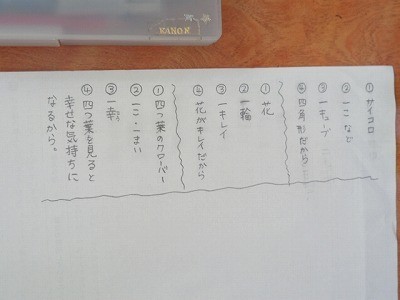 KANON
① サイコロ
② 一こ など
③ 一キューブ
④ 四角形だから
① 花
② 一輪
③ 一キレイ
④ 花がキレイだから
① 四つ葉のクローバー
② 一こ・一まい
③ 一幸
④ 四つ葉を見ると
幸せな気持ちに
なるから。